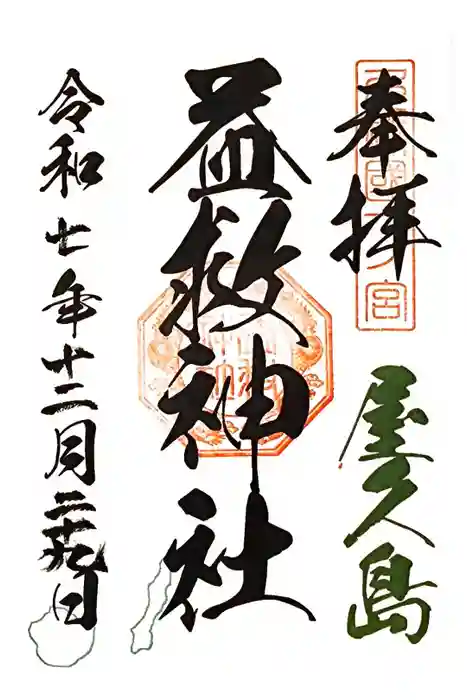 奉拝
屋久島
益救神社
令和七年十二月二十九日